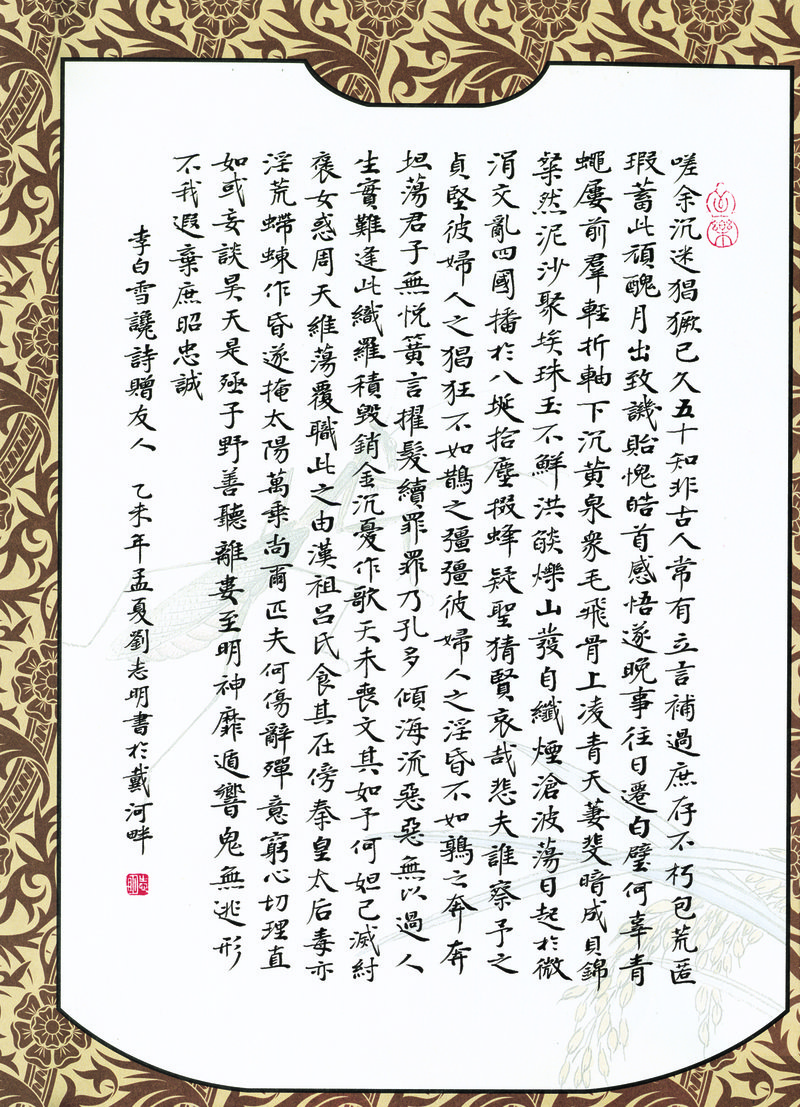 嗟余沉迷猖獗已久五十知非古人常有立言補過庶存不朽包荒匿
瑕蓄此頑醜月出致譏貽愧皓首感悟遂晚事往日遷白璧何辜青
蠅屢前羣輕折軸下沉黄泉衆毛飛骨上凌青天萋斐暗成貝錦
粲然泥沙聚埃珠玉不鮮洪燄爍山發自纖煙滄波蕩日起於微
涓交亂四國播於八埏拾塵掇蜂疑聖猜賢哀哉悲夫誰察予之
貞堅彼婦人之猖狂不如鵲之彊彊彼婦人之淫昏不如鶉之奔奔
坦蕩君子無悦簧言擢髮續罪罪乃孔多傾海流惡惡無以過人
生實難逢此織羅積毀銷金沉憂作歌天未喪文其如予何妲己滅紂
褒女惑周天維蕩覆職此之由漢祖呂氏食其在傍秦皇太后毒亦
淫荒螮蝀作昏遂掩太陽萬乘尚爾匹夫何傷辭殫意窮心切理直
如或妄談昊天是殛子野善聽離婁至明神靡遁響鬼無逃形
不我遐棄庶昭忠誠
李白雪讒詩贈友人 乙未年孟夏劉志明書於戴河畔
志明